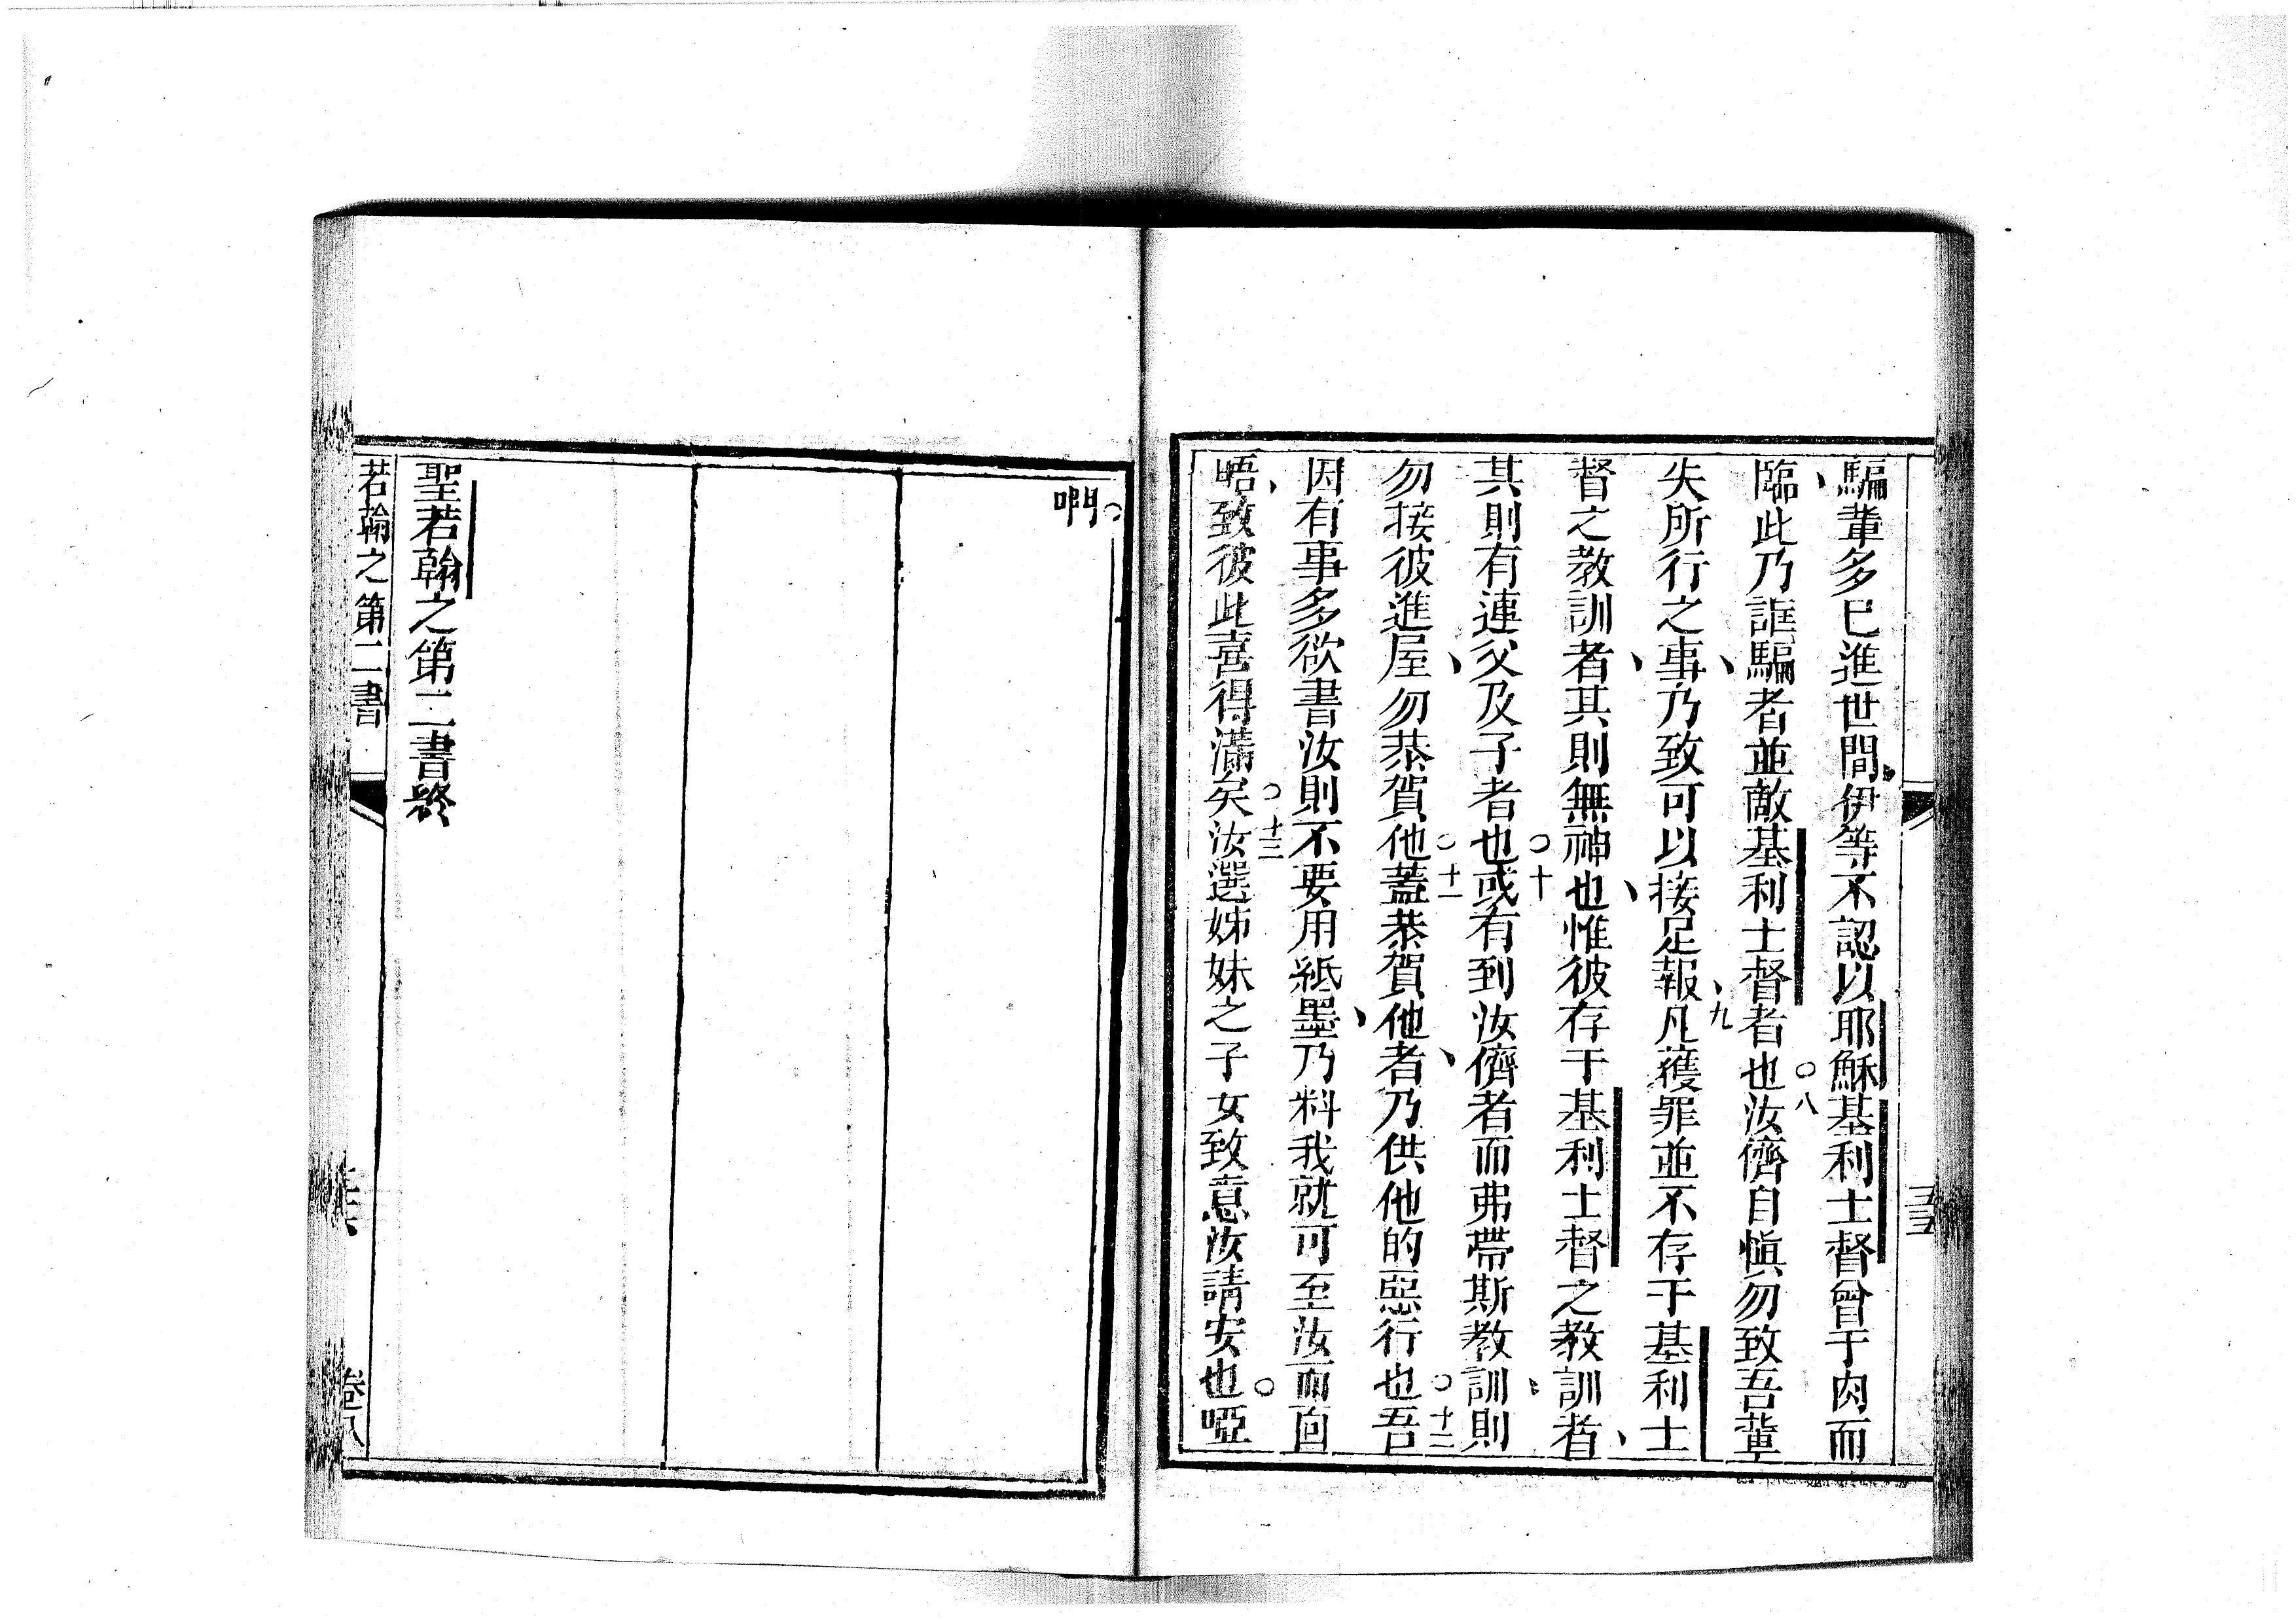 騙軰多已進世間伊等不認以耶穌基利士督曾于肉而
臨此乃誆騙者並敵基利士督者也○八汝儕自慎勿致吾軰
失所行之事乃致可以接足報九凡獲罪並不存于基利士
督之教訓者其則無神也惟彼存于基利士督之教訓者
其則有連父及子者也○十或有到汝儕者而弗帶斯教訓則
勿接彼進屋勿恭賀他○十一蓋恭賀他者乃供他的惡行也○十二吾
因有事多欲書汝則不要用紙墨乃料我就可至汝而面
晤致彼此喜得滿矣○十三汝選姊妹之子女致意汝請安也○啞
𠵽○
聖若翰之第二書終
若翰之第二書
卷八